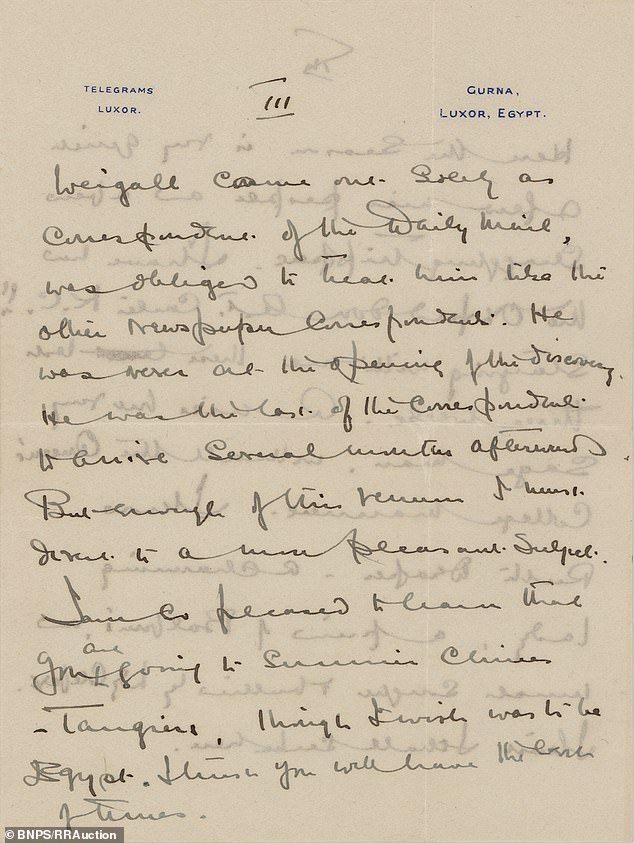 TELEGRAMS
LUXOR.
III
GURNA,
LUXOR, EGYPT.
Weigall came out solely as
Correspondent of the Daily Mail,
was obliged to treat him like the
other Newspaper Correspondents. He
was never at the opening of the discovery.
He was the last of the Correspondents
to arrive several months afterwards.
But enough of this venom I must
divert to a more pleasant subject.
I am so pleased to learn that
you are going to Sunnier Climes
- Tangiers, though I wish was to be
Egypt. I trust you will have the best
of times.
© BNPS/RRAuction